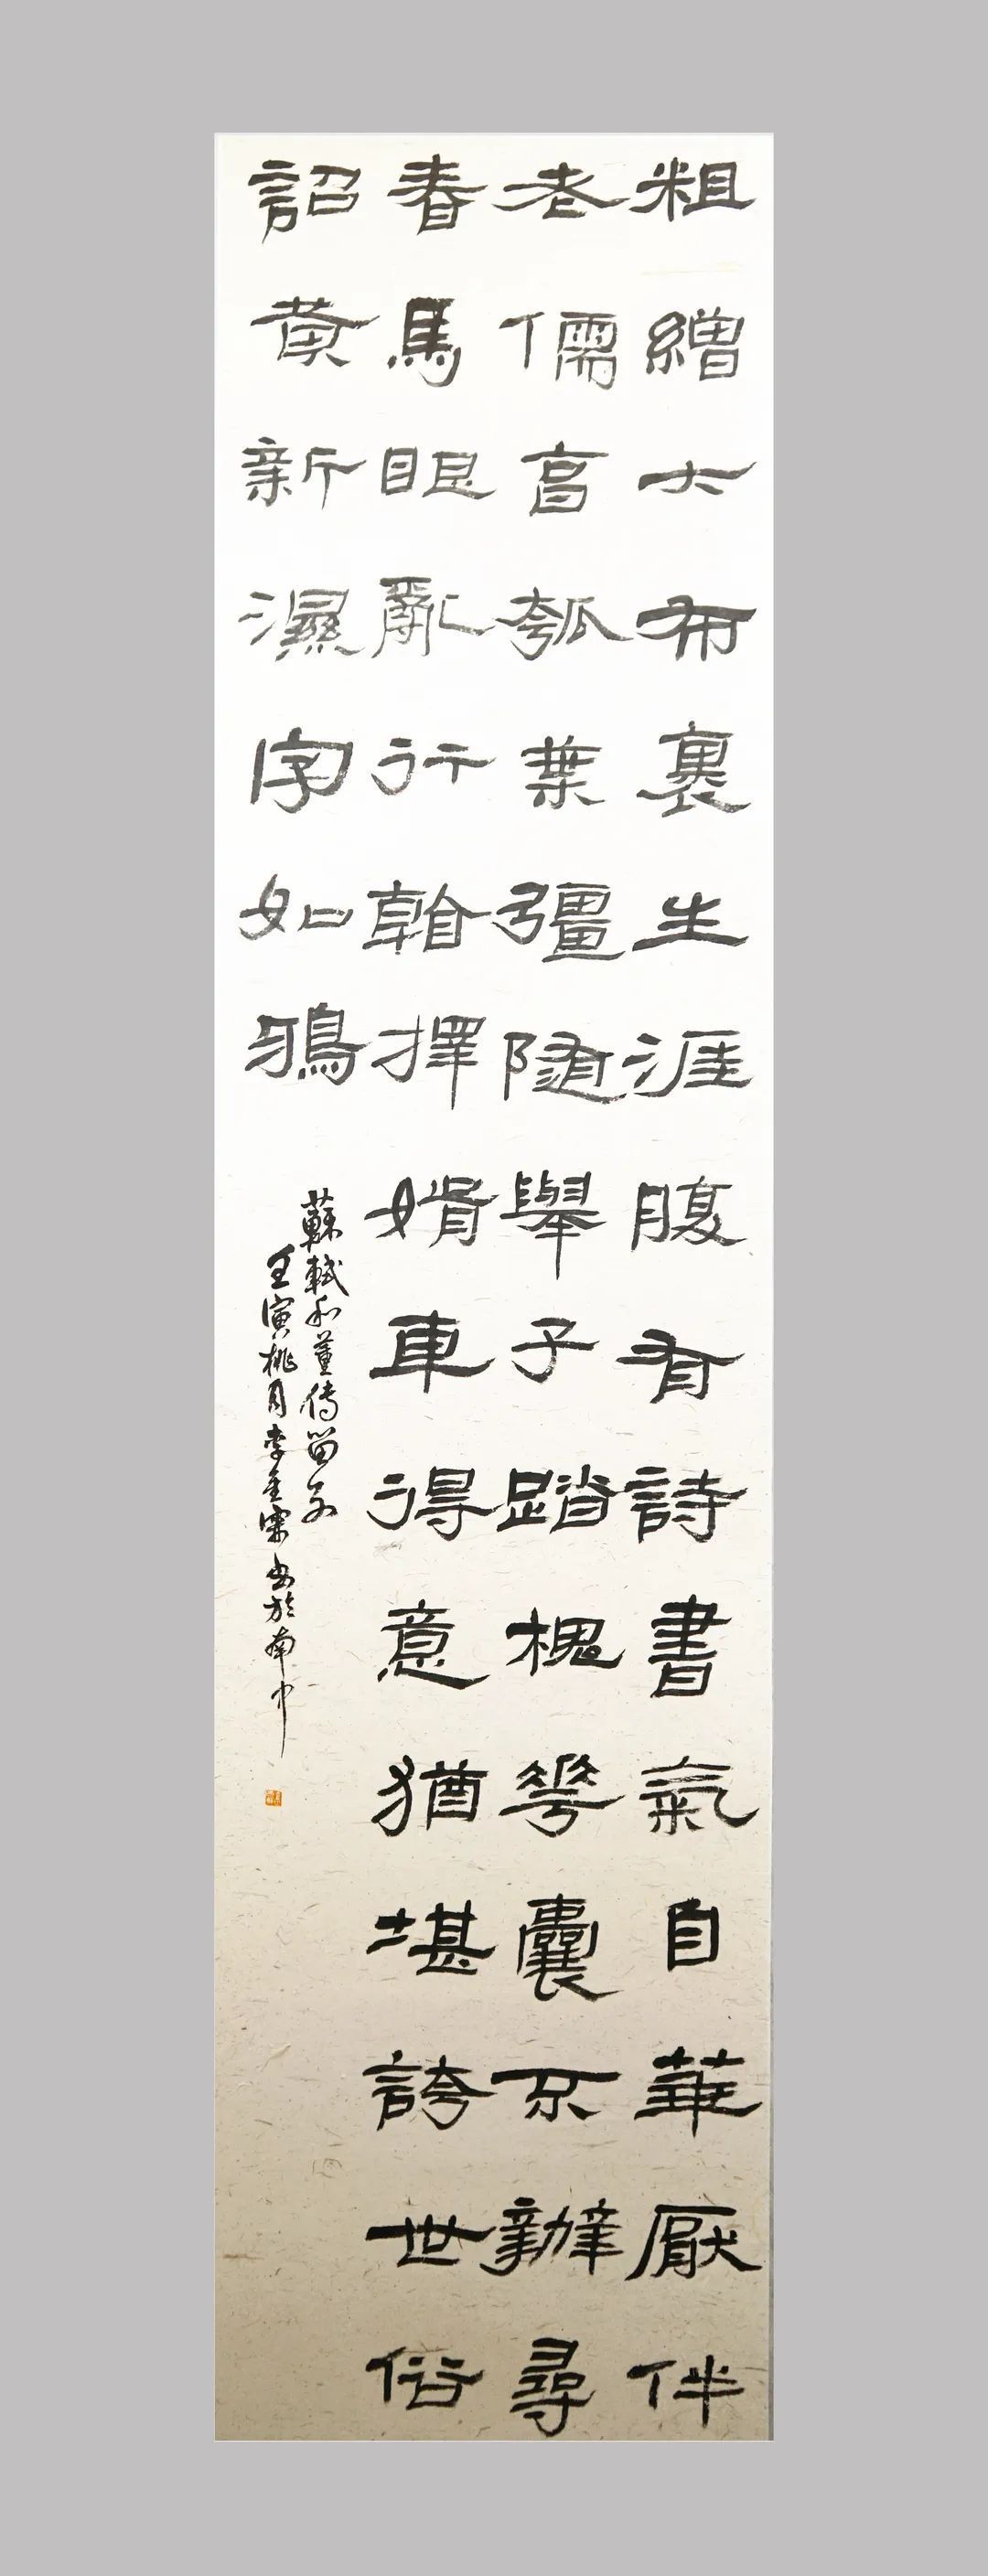 粗繒大布裹生涯腹有詩書氣自華厭伴
老儒亯瓠葉彊隨舉子踏槐花囊不辦尋
春馬眼亂行看擇婿車得意猶堪誇世俗
詔黃新濕字如鴉
蘇軾和董傳留別
壬寅桃月李金書於南中